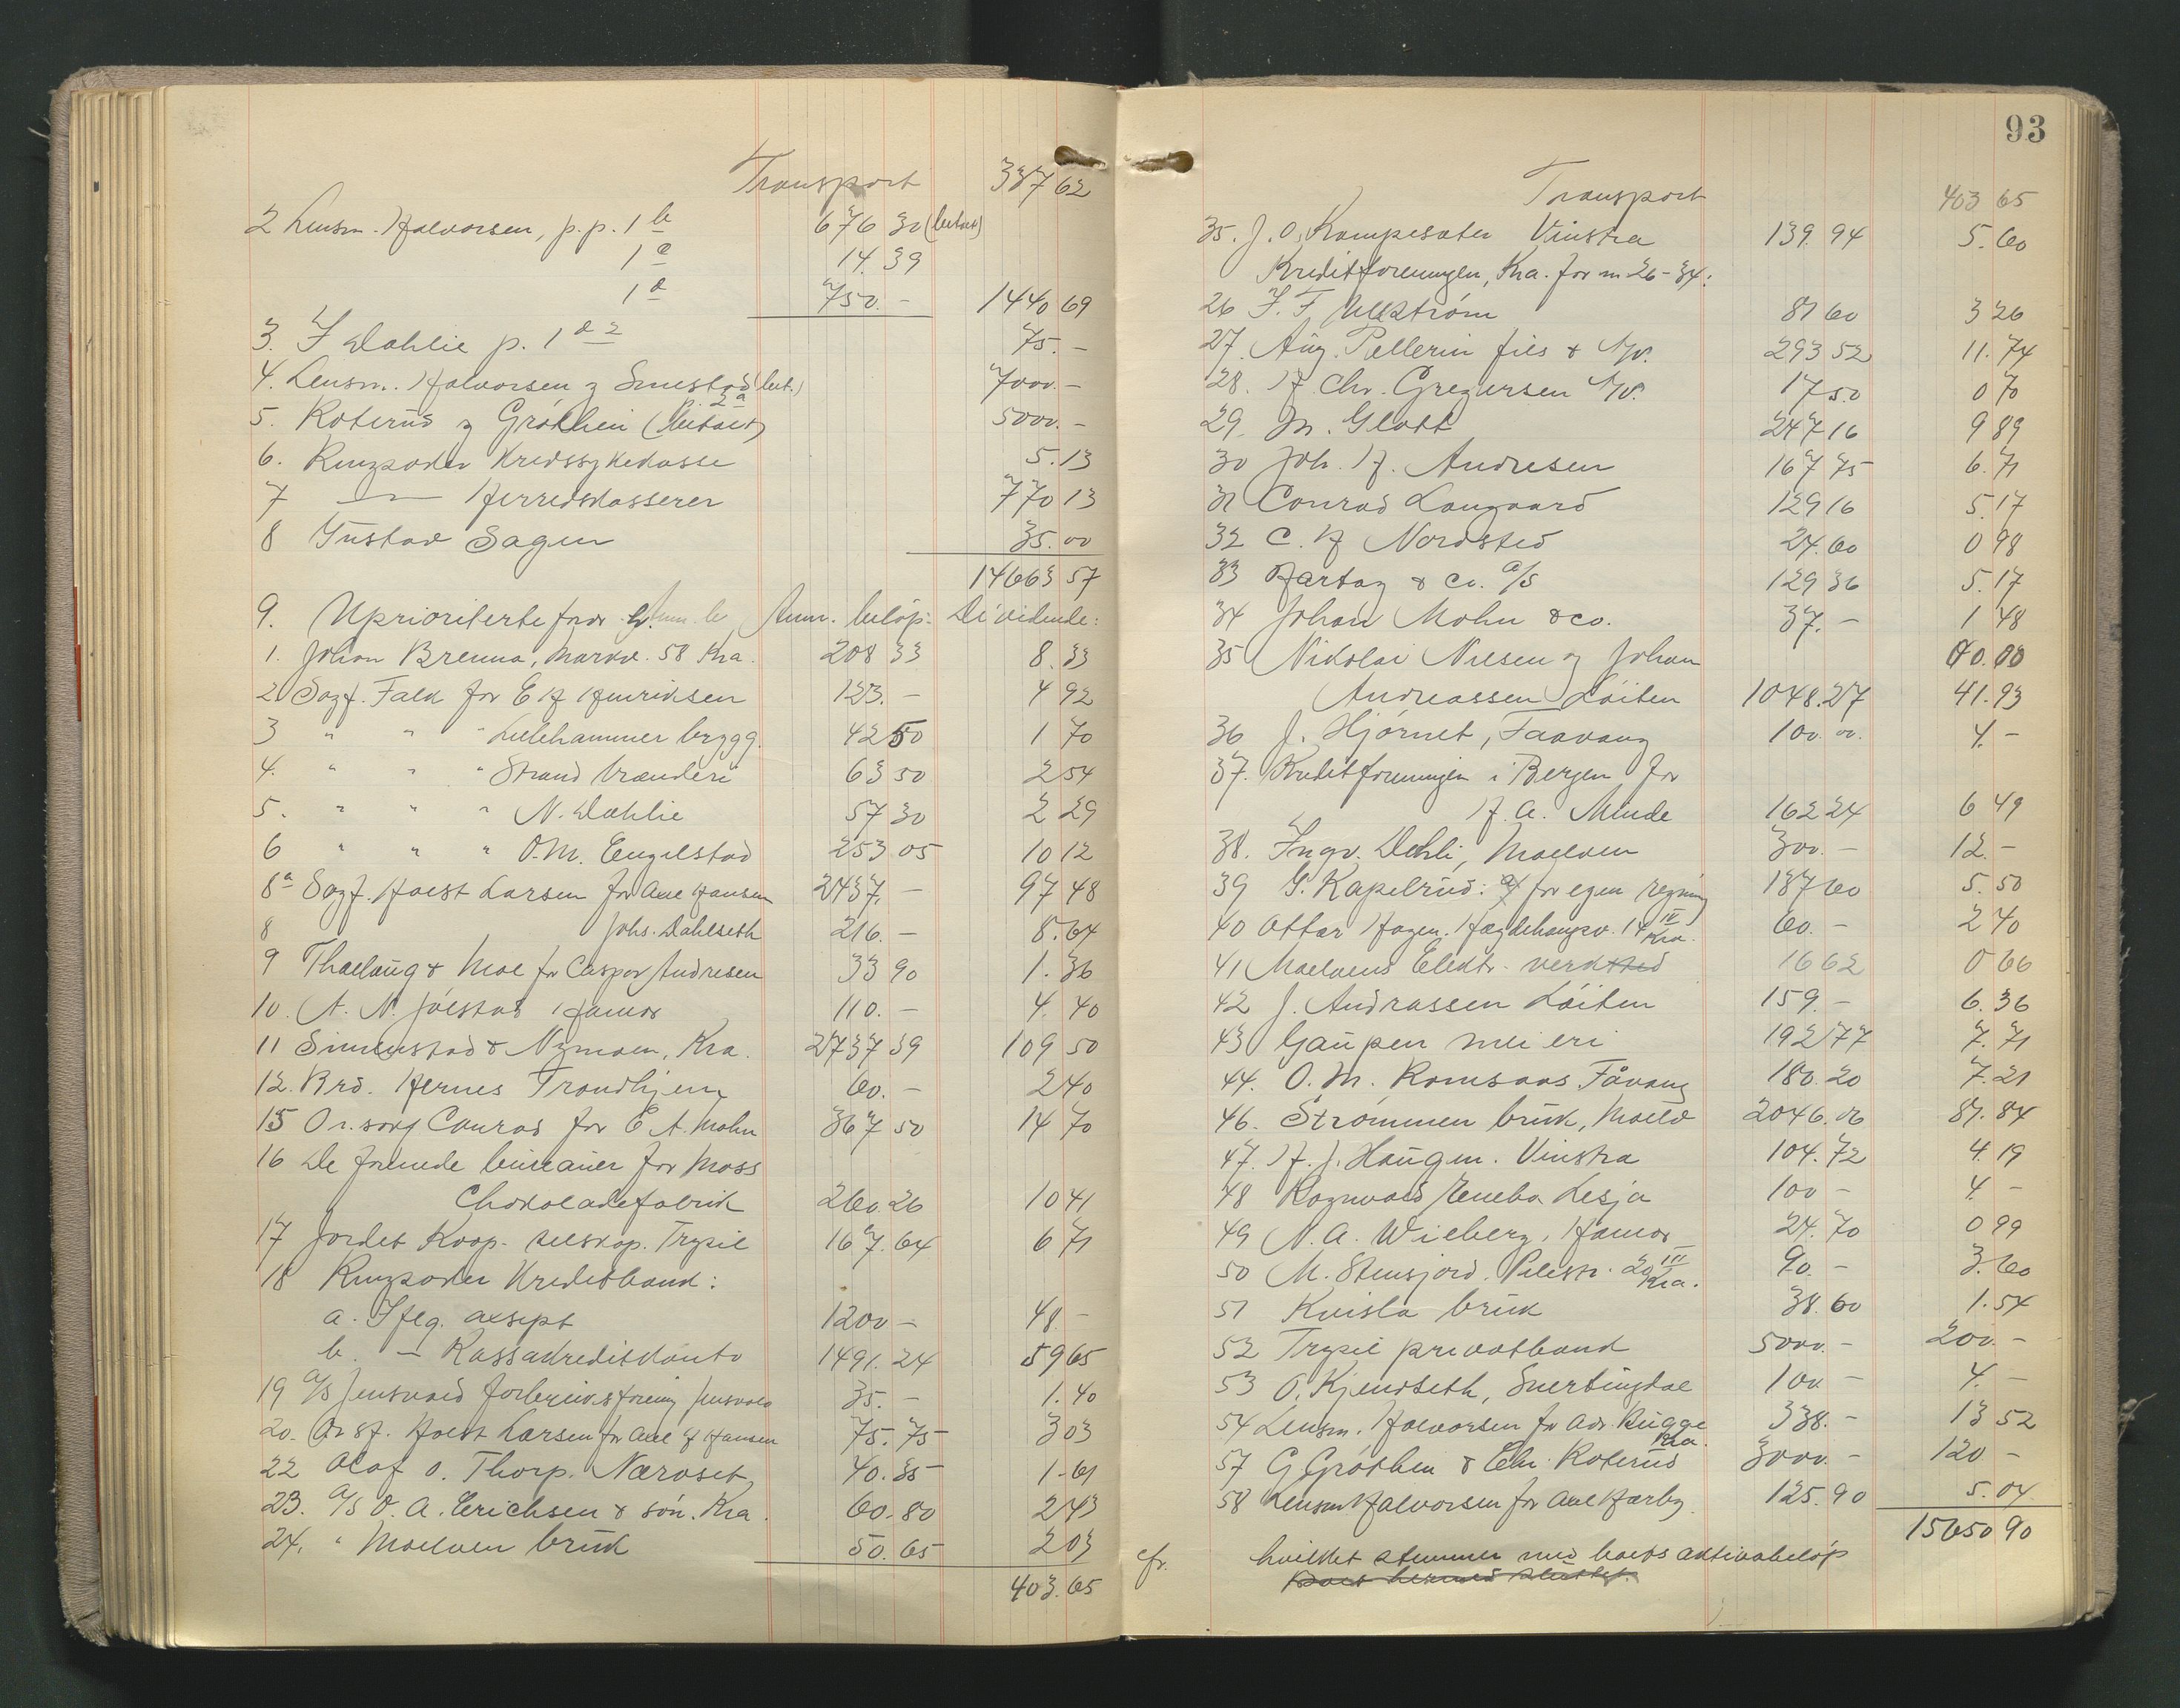 Transport 337 62
2 Lensm. Halvorsen, p.p. 1 b 676 30 (betalt)
1 c 14.39
1 d 750.- 1440 69
3. J Dahlie p. 1 d 2 75.-
4. Lensm. Halvorsen og Smestad (bet.) 7000.-
p. 2 a
5. Koterud og Gröthen (betalt) 5000.-
6. Ringsaker Kredssykekasse 5.13
7 —"— Herredskasserer 770 13
8 Gustav Sagen 35.00
14663 57
9. Uprioriterte fordr. Anm. belöp: Dividende:
1. Johan Brenna, Markv. 58 Kra. 208 33 8.33
2 Sagf. Falk for E H Henriksen 123.- 4 92
3 " " " Lillehammer brygg. 42 50 1 70
4. " " " Strand brænderi 63 50 2 54
5. " " " N. Dæhlie 57 30 2 29
6 " " " O.M. Engelstad 253 05 10 12
8a Sagf. Hoest Larsen for Axel Hansen 2437.- 97 48
8 Johs. Dahlseth 216.- 8.64
9 Thaulaug & Moe for Caspar Andresen 33 90 1.36
10. A. N. Jölstad Hamar 110.- 4.40
11 Simenstad & Nymoen, Kra. 2737 39 109 50
12. Brd. Hernes Trondhjem 60.- 2 40
15 Or. sagf Conrad for E A. Mohn 367 50 14 70
16 De forenede bureauer for Moss
Chokoladefabrik 260.26 10 41
17 Jordet Koop. selskap. Trysil 167.64 6 71
18 Ringsaker Kreditbank:
a. Iflg. aksept 1200 - 48 -
b. — Kassakreditkonto 1491.24 59 65
19 A/S Jensvold forbruksforening Jensvold 35.- 1.40
20. Or sf. Hoest Larsen for Axel H Hansen 75.75 3 03
22 Olaf O. Thorp. Næroset 40.35 1.61
23. A/S O. A. Erichsen & sön. Kra. 60.80 2 43
24. " Moelven bruk 50.65 2 03
403.65
93
Transport 403 65
35. J. O. Kampesæter Vinstra 139.94 5.60
Kreditforeningen, Kra. for nr 26-34:
26 F. F. Ullström 81 60 3 26
27. Aug. Pellerin fils & A/S. 293 52 11.74
28. H. Chr. Gregersen A/S. 17 50 0 70
29. M. Glott 247 16 9 89
30 Joh. H. Andresen 167 75 6.71
31 Conrad Langaard 129 16 5.17
32 C. H Nordsted 24.60 0 98
33 Hartog & Co. A/S 129 36 5.17
34 Johan Mohn & co. 37.- 1 48
35 Nikolai Nilsen og Johan
Andreassen Löiten 1048.27 41.93
36 J. Hjörnet, Faavang 100.00. 4.-
37. Kreditforeningen i Bergen for
H. A. Minde 162 24 6 49
38. Ingv. Dehli, Moelven 300.- 12.-
39 G. Kapelrud: a/ for egen regning 137 60 5.50
40 Ottar Hagen. Hægdehaugsv. 14 IV Kra. 60.- 2 40
41 Moelvens Elektr. verksted 16 62 0 66
42 J. Andrassen Löiten 159.- 6.36
43 Gaupen meieri 192 77 7.71
44. O. M. Romsaas Fåvang 180.20 7.21
46. Strömmen bruk, Moelv 2046.06 81.84
47. H. J. Haugen. Vinstra 104.72 4.19
48 Ragnvald Enebo Lesja 100 - 4 -
49 N. A. Wieberg, Hamar 24.70 0 99
50 M. Stensjord. Pilestr. 20 III Kra. 90.- 3.60
51 Kvisla bruk 38.60 1.54
52 Trysil privatbank 5000.- 200.-
53 O. Kjendseth, Snertingdal 100 - 4.-
54 Lensm. Halvorsen for Adv. Bugge Kra. 338.- 13 52
57 G Gröthen & Chr. Koterud 3000.- 120 -
58 Lensm Halvorsen for Axel Hærby. 125.90 5.04
15650 90
cfr. hvilket stemmer med boets aktivabelöp